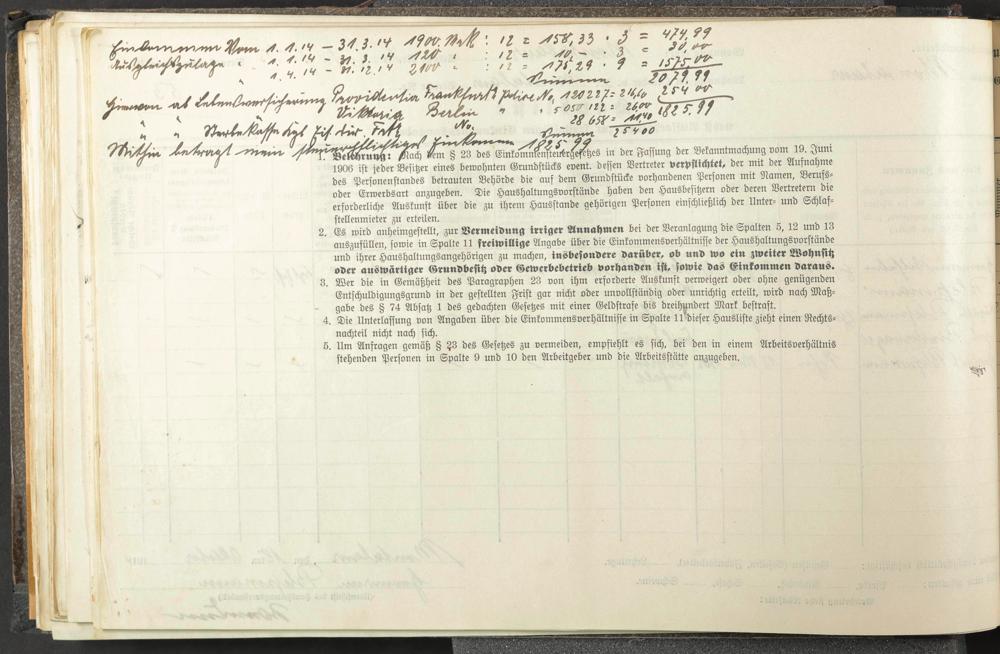 Einkommen Vom 1.1.14 – 31.3.14 1900. Mrk : 12 = 158,33 · 3 = 474,99
Ausgleichszulage " 1.1.14 – 31.3.14 120 " : 12 = 10,- · 3 = 30,00
" 1.4.14 – 31.12.14 2100 " : 12 = 175,29 · 9 = 1575 00
Summa 2079,99
Hiervon ab Lebensversicherung Providentia Frankfurt Police No. 120227 = 216,60 254 00
" " Viktoria Berlin " " 5 050 122 = 2600 1825,99
" " Sterbekasse Kgl. No. 28 658 = 11,40
Summa 254 00
Mithin beträgt mein steuerpflichtiges Einkommen 1825,99
1. Belehrung: Nach dem § 23 des Einkommensteuergesetzes in der Fassung der Bekanntmachung vom 19. Juni
1906 ist jeder Besitzer eines bewohnten Grundstücks event. dessen Vertreter verpflichtet, der mit der Aufnahme
des Personenstandes betrauten Behörde die auf dem Grundstücke vorhandenen Personen mit Namen, Berufs-
oder Erwerbsart anzugeben. Die Haushaltungsvorstände haben den Hausbesitzern oder deren Vertretern die
erforderliche Auskunft über die zu ihrem Hausstande gehörigen Personen einschließlich der Unter- und Schlaf-
stellenmieter zu erteilen.
2. Es wird anheimgestellt, zur Vermeidung irriger Annahmen bei der Veranlagung die Spalten 5, 12 und 13
auszufüllen, sowie in Spalte 11 freiwillige Angabe über die Einkommensverhältnisse der Haushaltungsvorstände
und ihrer Haushaltungsangehörigen zu machen, insbesondere darüber, ob und wo ein zweiter Wohnsitz
oder auswärtiger Grundbesitz oder Gewerbebetrieb vorhanden ist, sowie das Einkommen daraus.
3. Wer die in Gemäßheit des Paragraphen 23 von ihm erforderte Auskunft verweigert oder ohne genügenden
Entschuldigungsgrund in der gestellten Frist gar nicht oder unvollständig oder unrichtig erteilt, wird nach Maß-
gabe des § 74 Absatz 1 des gedachten Gesetzes mit einer Geldstrafe bis dreihundert Mark bestraft.
4. Die Unterlassung von Angaben über die Einkommensverhältnisse in Spalte 11 dieser Hausliste zieht einen Rechts-
nachteil nicht nach sich.
5. Um Anfragen gemäß § 23 des Gesetzes zu vermeiden, empfiehlt es sich, bei den in einem Arbeitsverhältnis
stehenden Personen in Spalte 9 und 10 den Arbeitgeber und die Arbeitsstätte anzugeben.